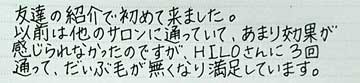 友達の紹介で初めて来ました。
以前は他のサロンに通っていて、あまり効果が
感じられなかったのですが、HILOさんに3回
通って、だいぶ毛が無くなり満足しています。